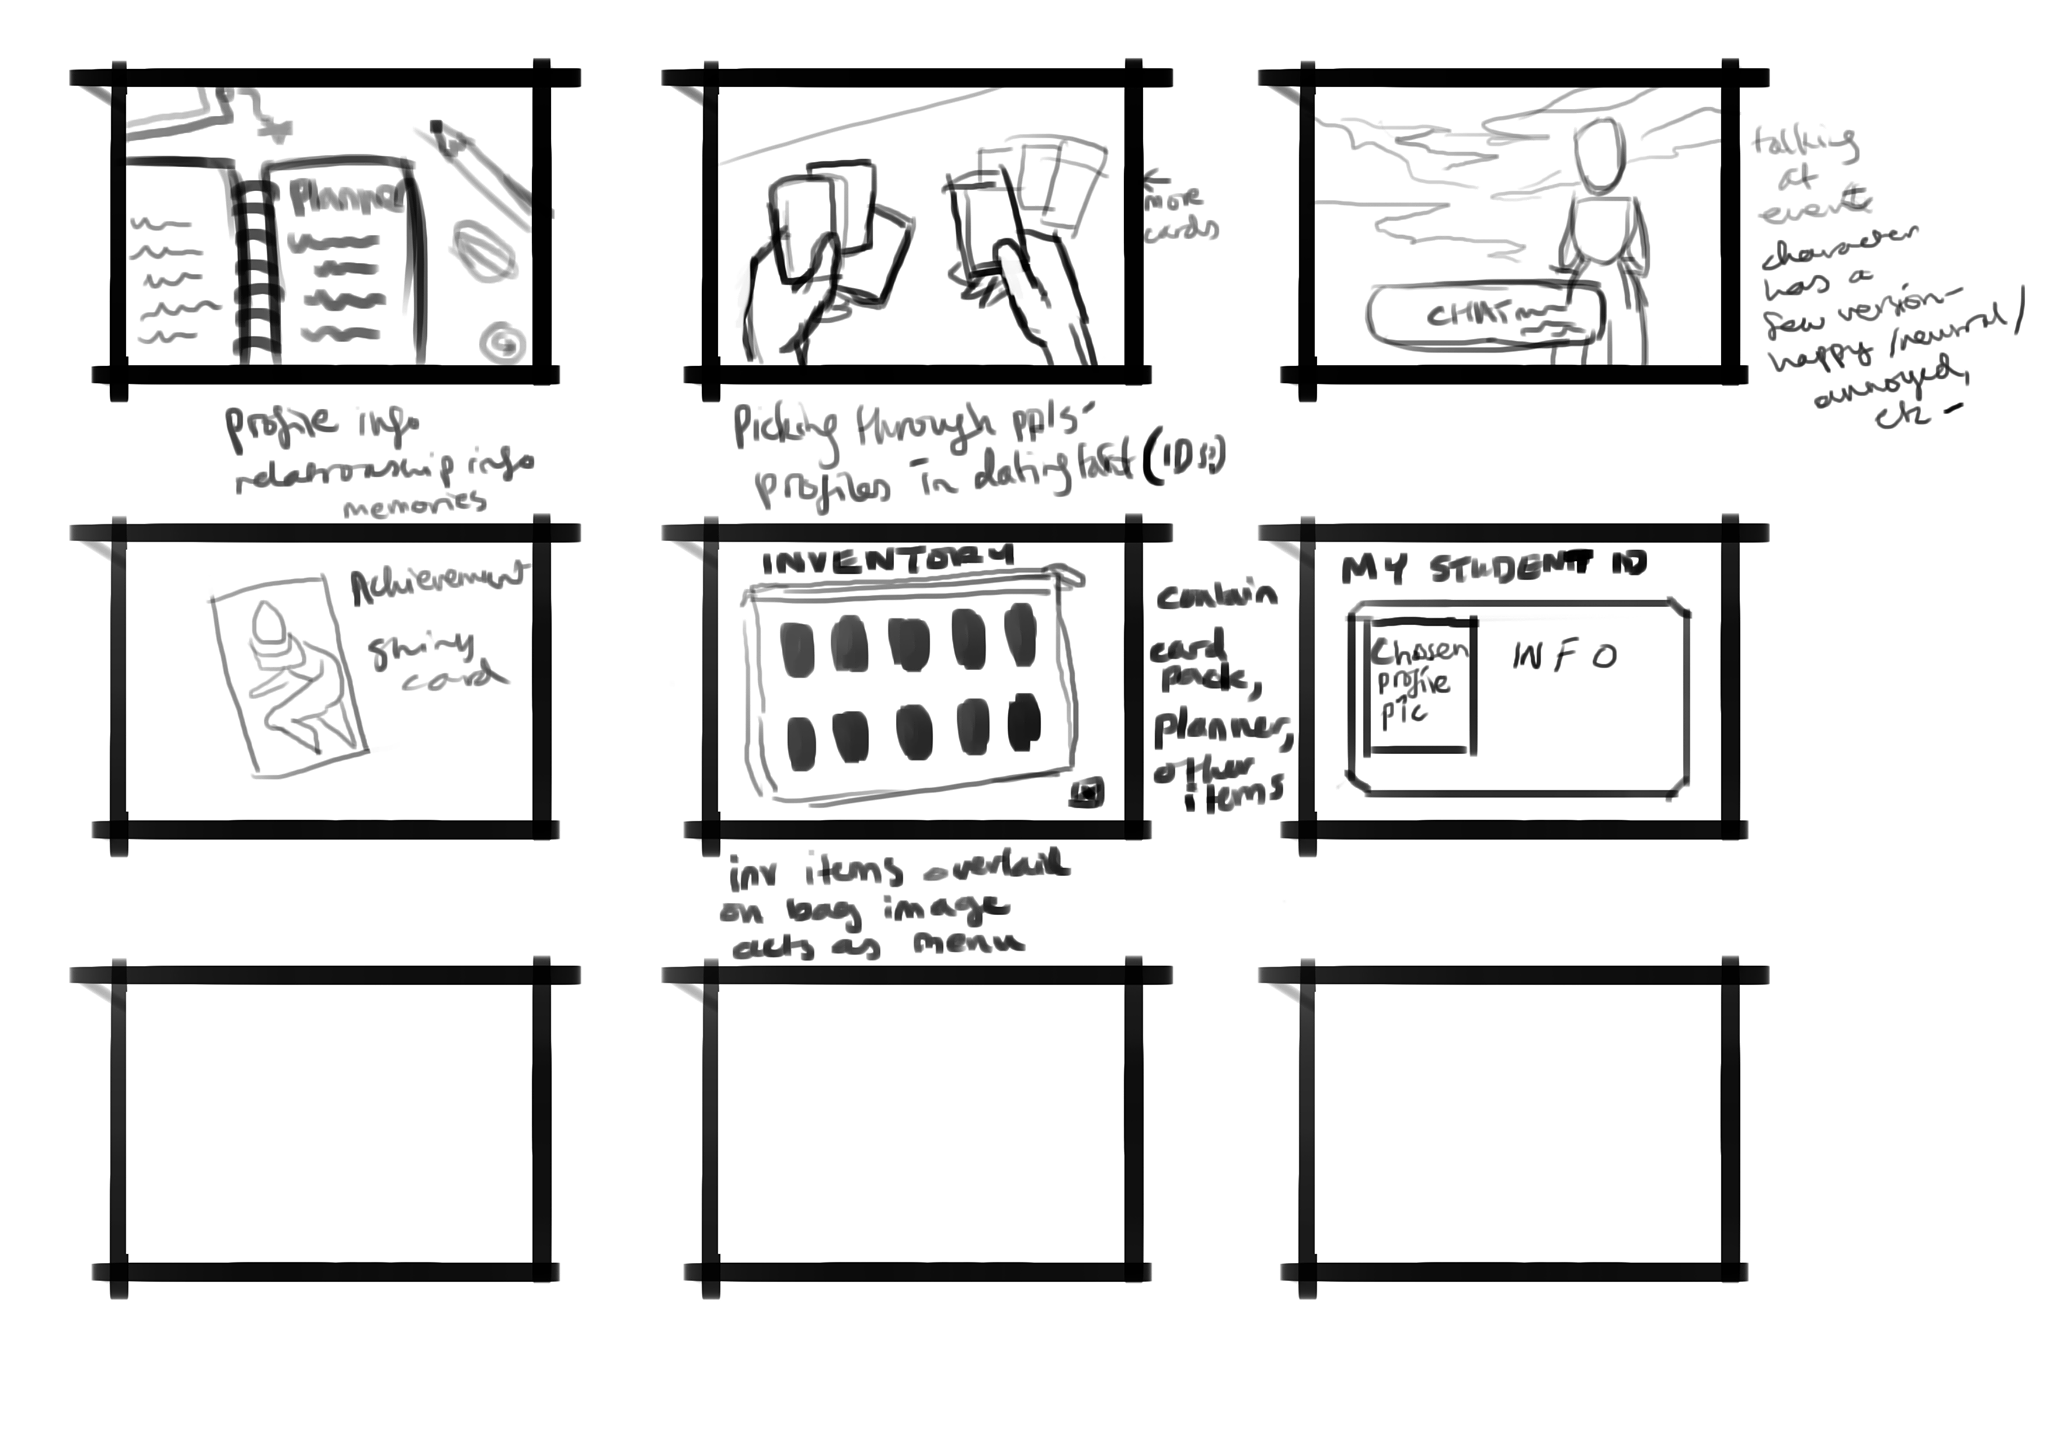 Planner
profile info
relationship info
memories
← more
cards
Picking through ppls
profiles in dating (IDs?)
CHAT
talking
at
event
character
has a
few version-
happy /neutral/
annoyed,
etc -
Achievement
shiny
card
INVENTORY
contain
card
pack,
planner,
other
items
inv items overlaid
on bag image
acts as menu
MY STUDENT ID
Chosen
profile
pic
INFO